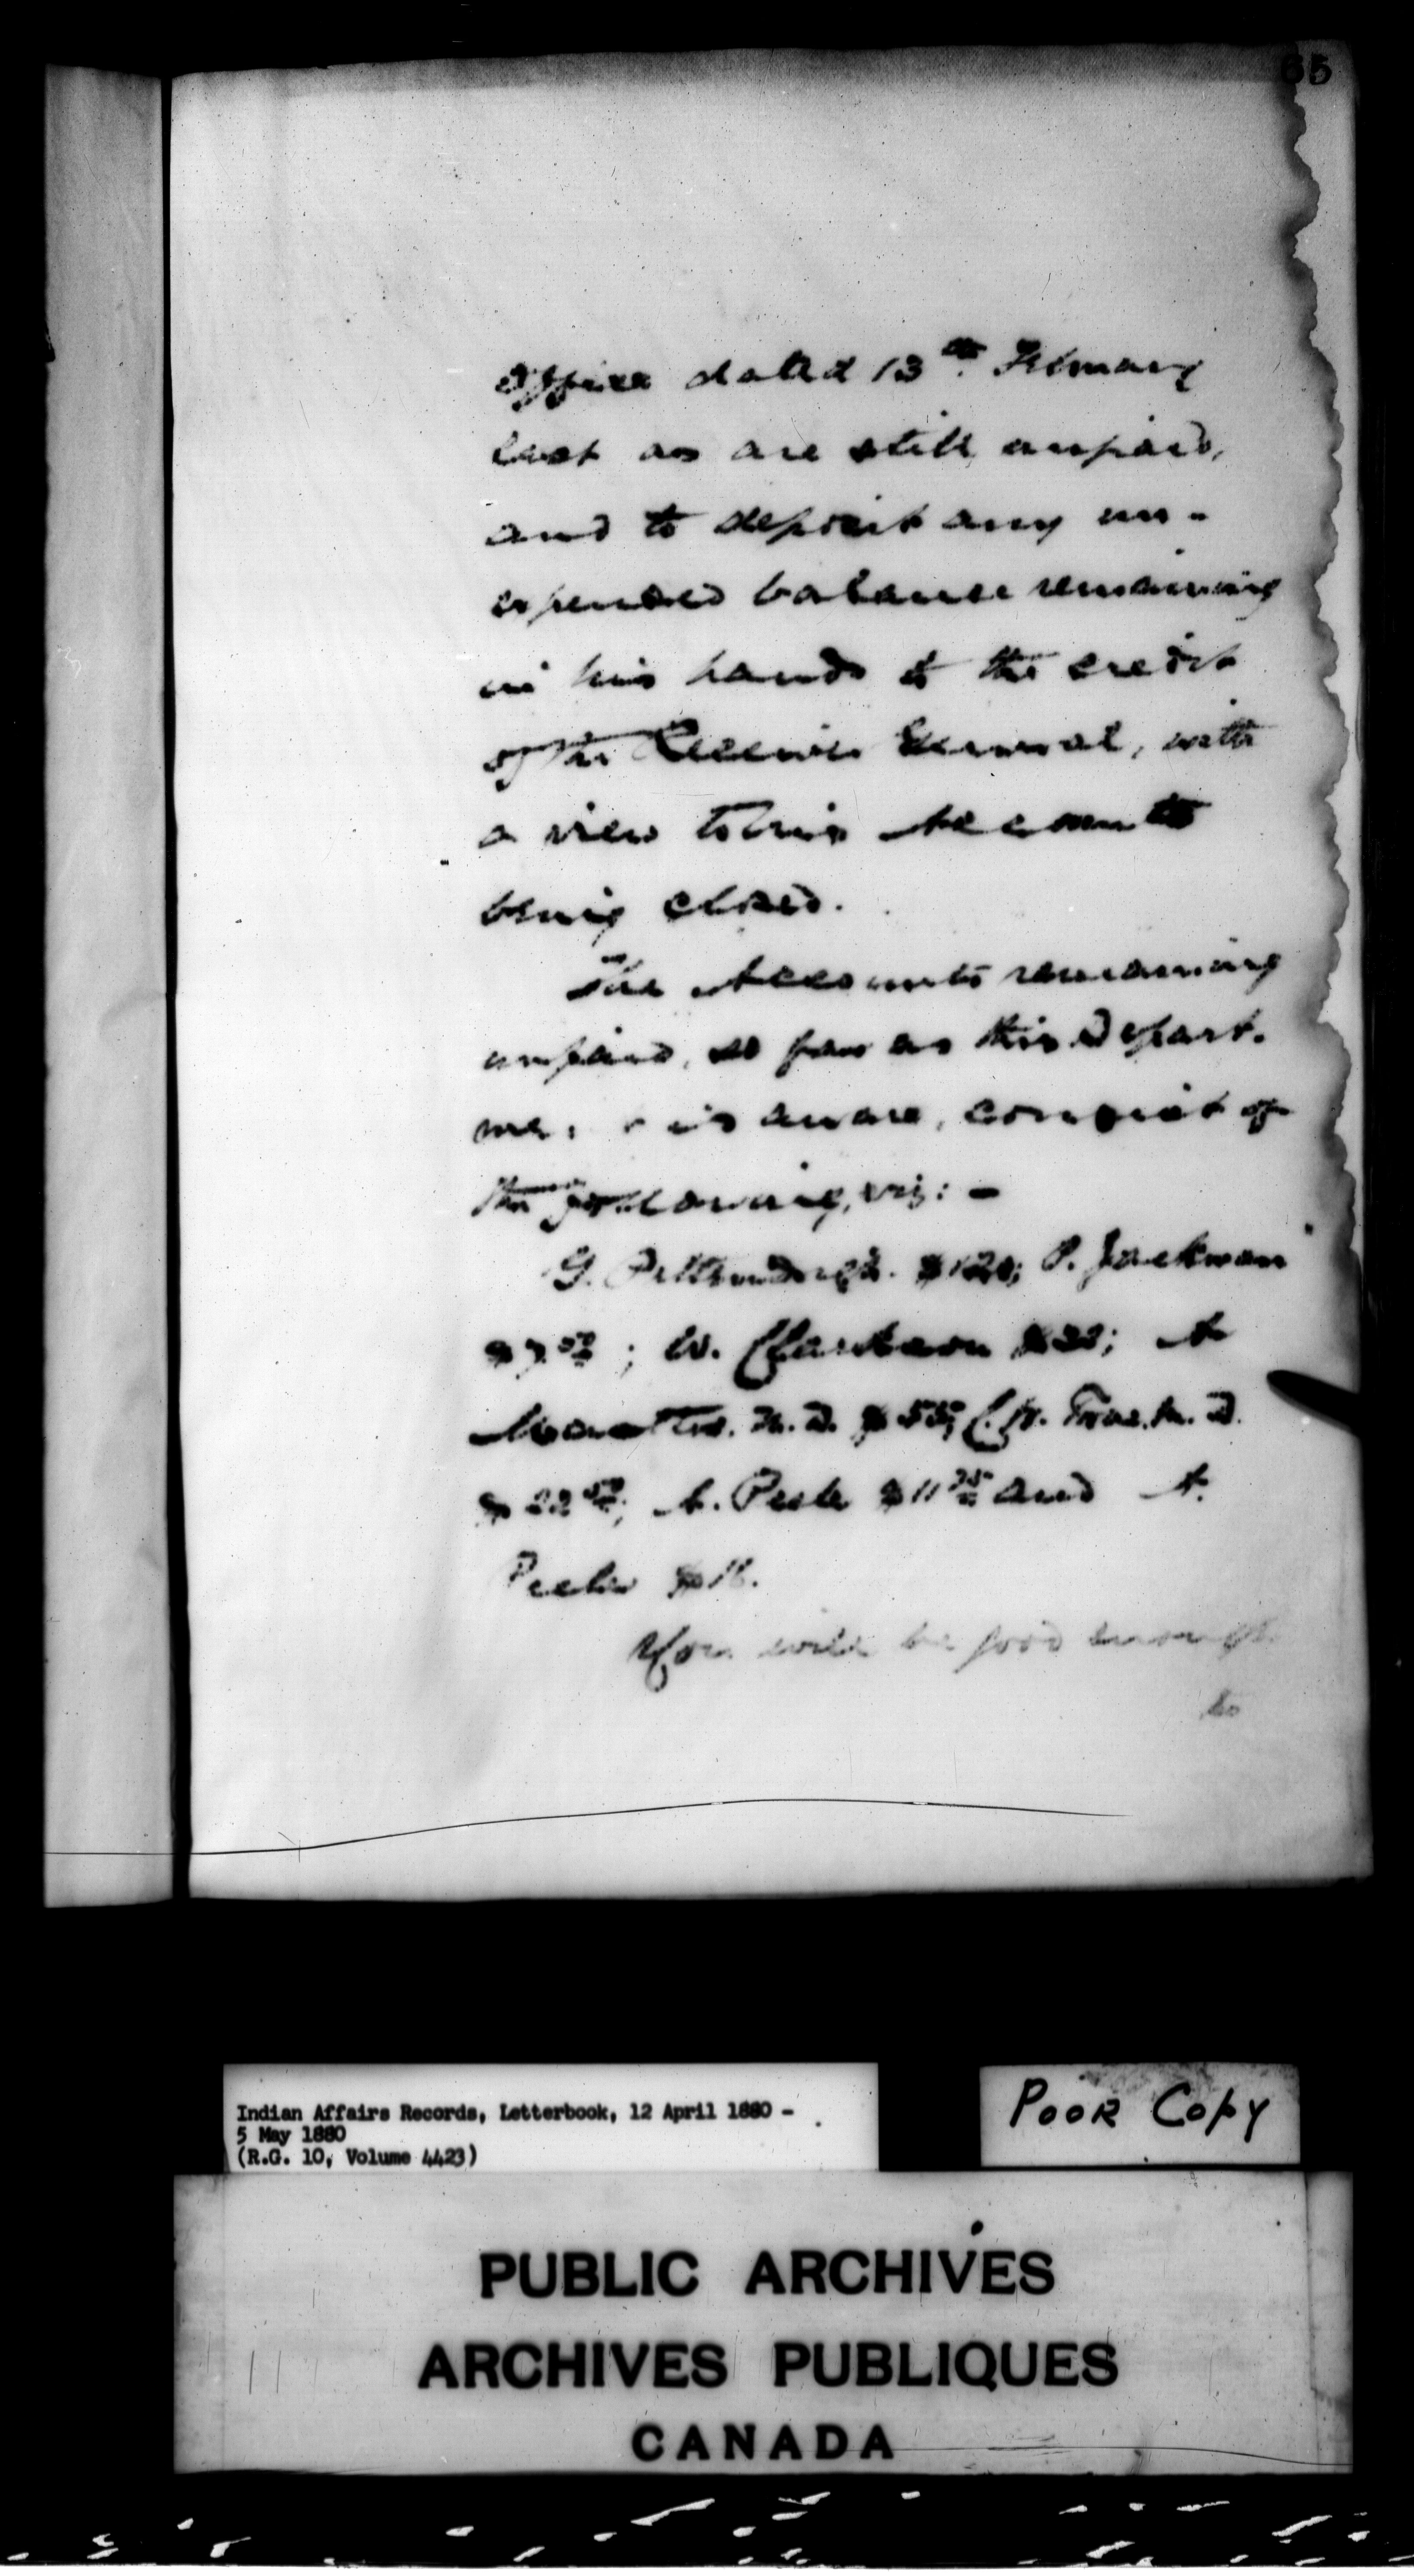 65
Office dated 13th. February
last as are still unpaid,
and to deposit any un-
expended balance remaining
in his hands to the credit
of the Receiver General, with
a view to his Accounts
being closed.
The Accounts remaining
unpaid, so far as this Depart-
me is aware, consist of
the following, viz: -
G. $120; P. Jackman
$7.50; W. Clarkson $22; A
M.D. $55; M.D.
$22.50; A. $11.75 and A.
$16.
You will be good enough
to
Indian Affairs Records, Letterbook, 12 April 1880 -
5 May 1880
(R.G. 10, Volume 4423)
POOR COPY
PUBLIC ARCHIVES
ARCHIVES PUBLIQUES
CANADA